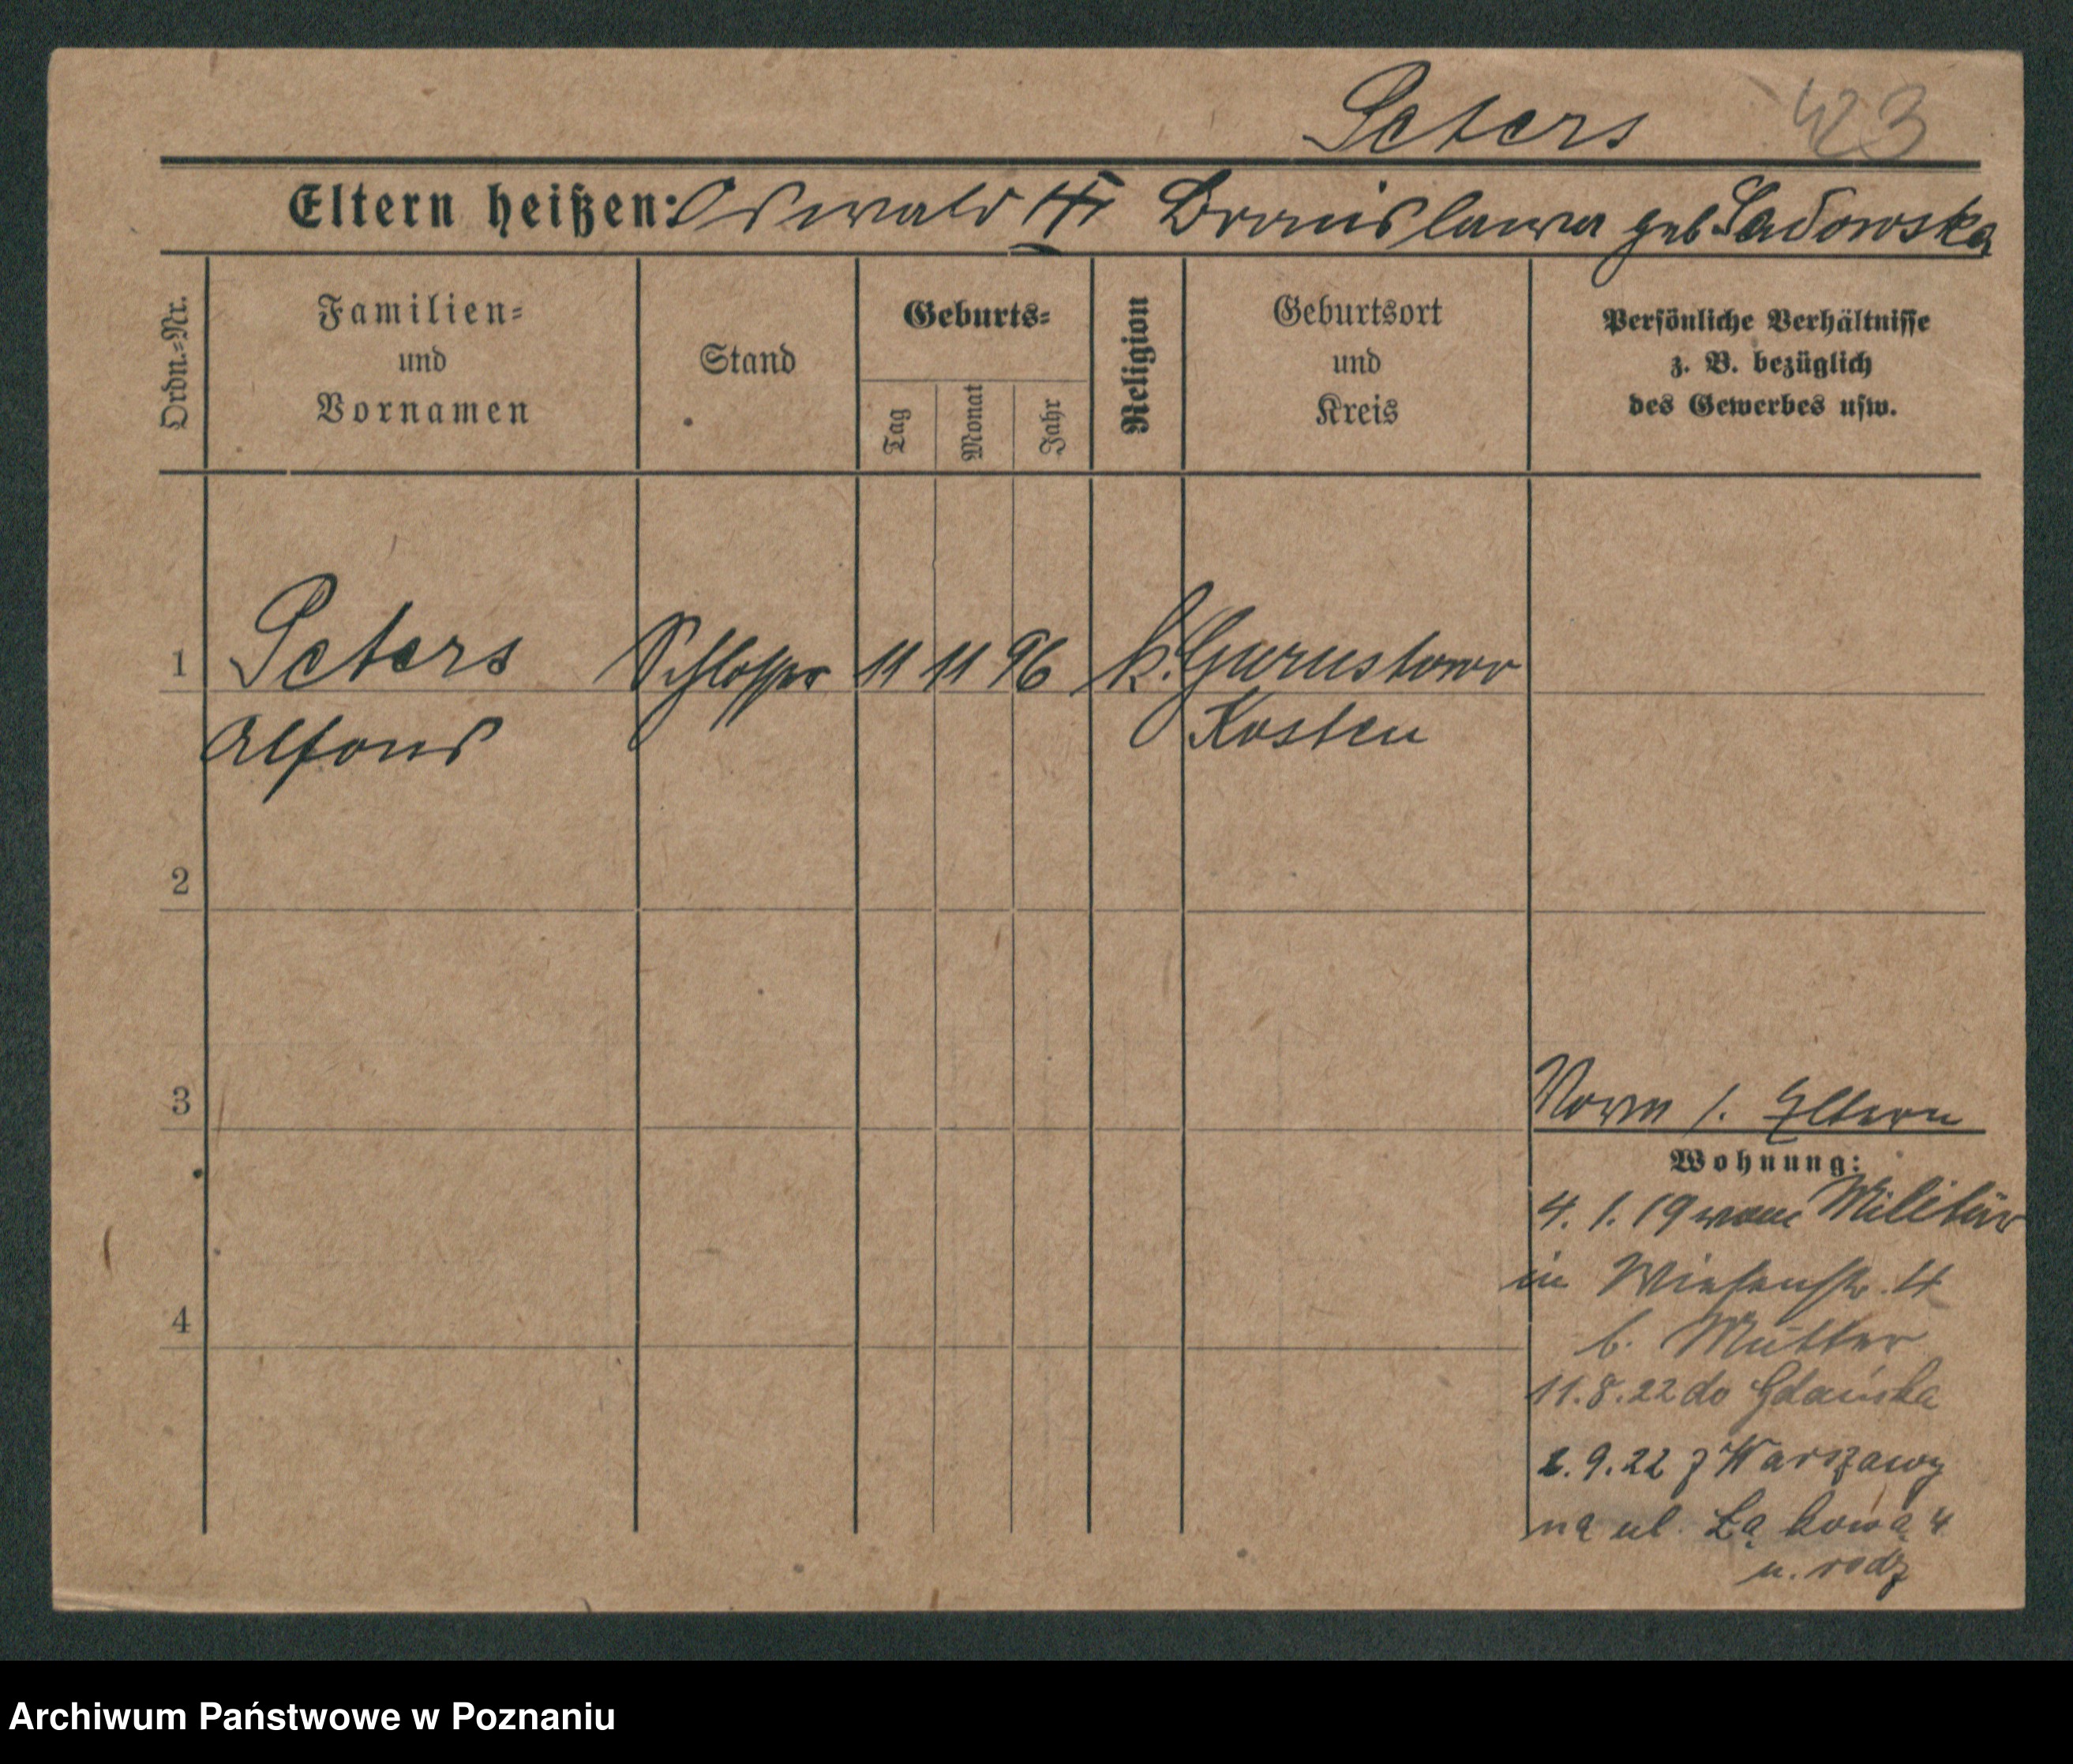 Peters 423
Eltern heißen: Oswald Bronislawa geb Sadowska
Ordn.-Nr.
Familien-
und
Vornamen
Stand
Geburts-
Tag
Monat
Jahr
Religion
Geburtsort
und
Kreis
Persönliche Verhältnisse
z. B. bezüglich
des Gewerbes usw.
1 Peters Schlosser 11 11 96 k. Gurustowo
Alfons Kosten
2
3
Vorm s. Eltern
Wohnung:
4. 1. 19 vom Militär
in Wiesenstr. 4
4
b. Mutter
11.8.22 do Gdańska
2.9.22 z Warszawy
na ul. Łąkową 4
u. rodz
Archiwum Państwowe w Poznaniu